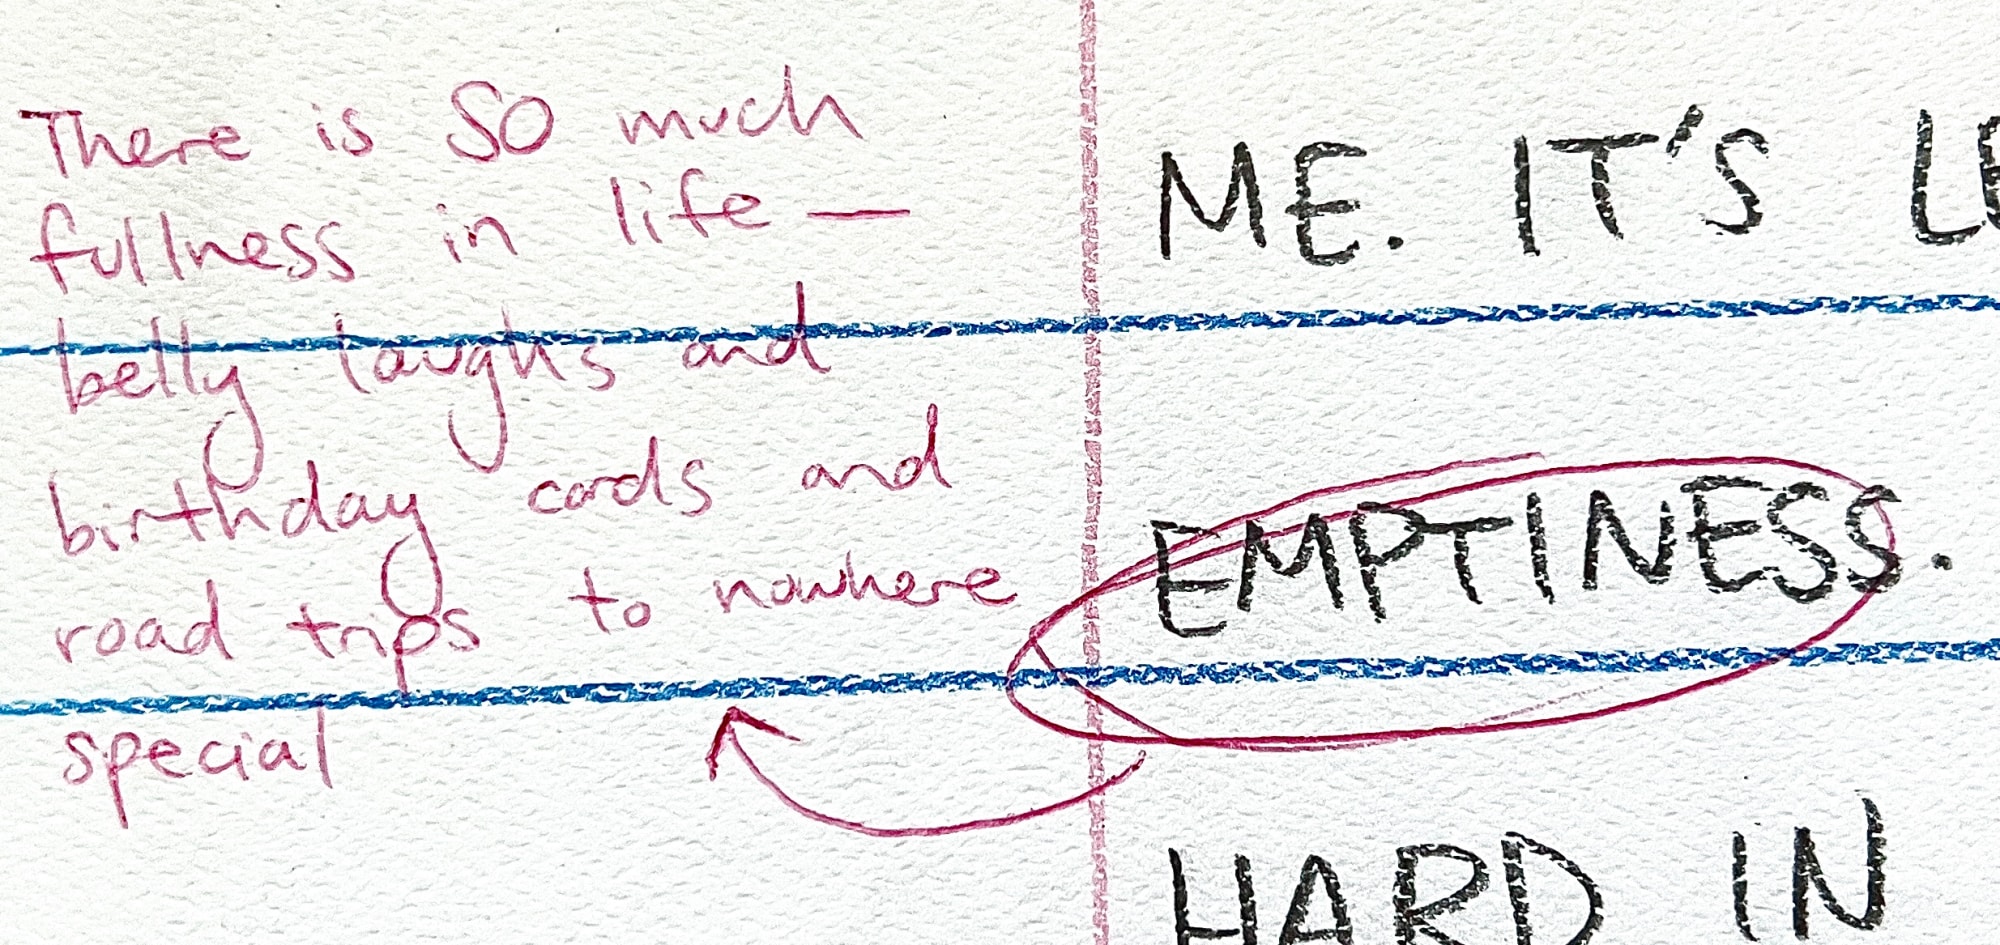 There is SO much
fullness in life —
belly laughs and
birthday cards and
road trips to nowhere
special
ME. IT'S
EMPTINESS.
HARD IN